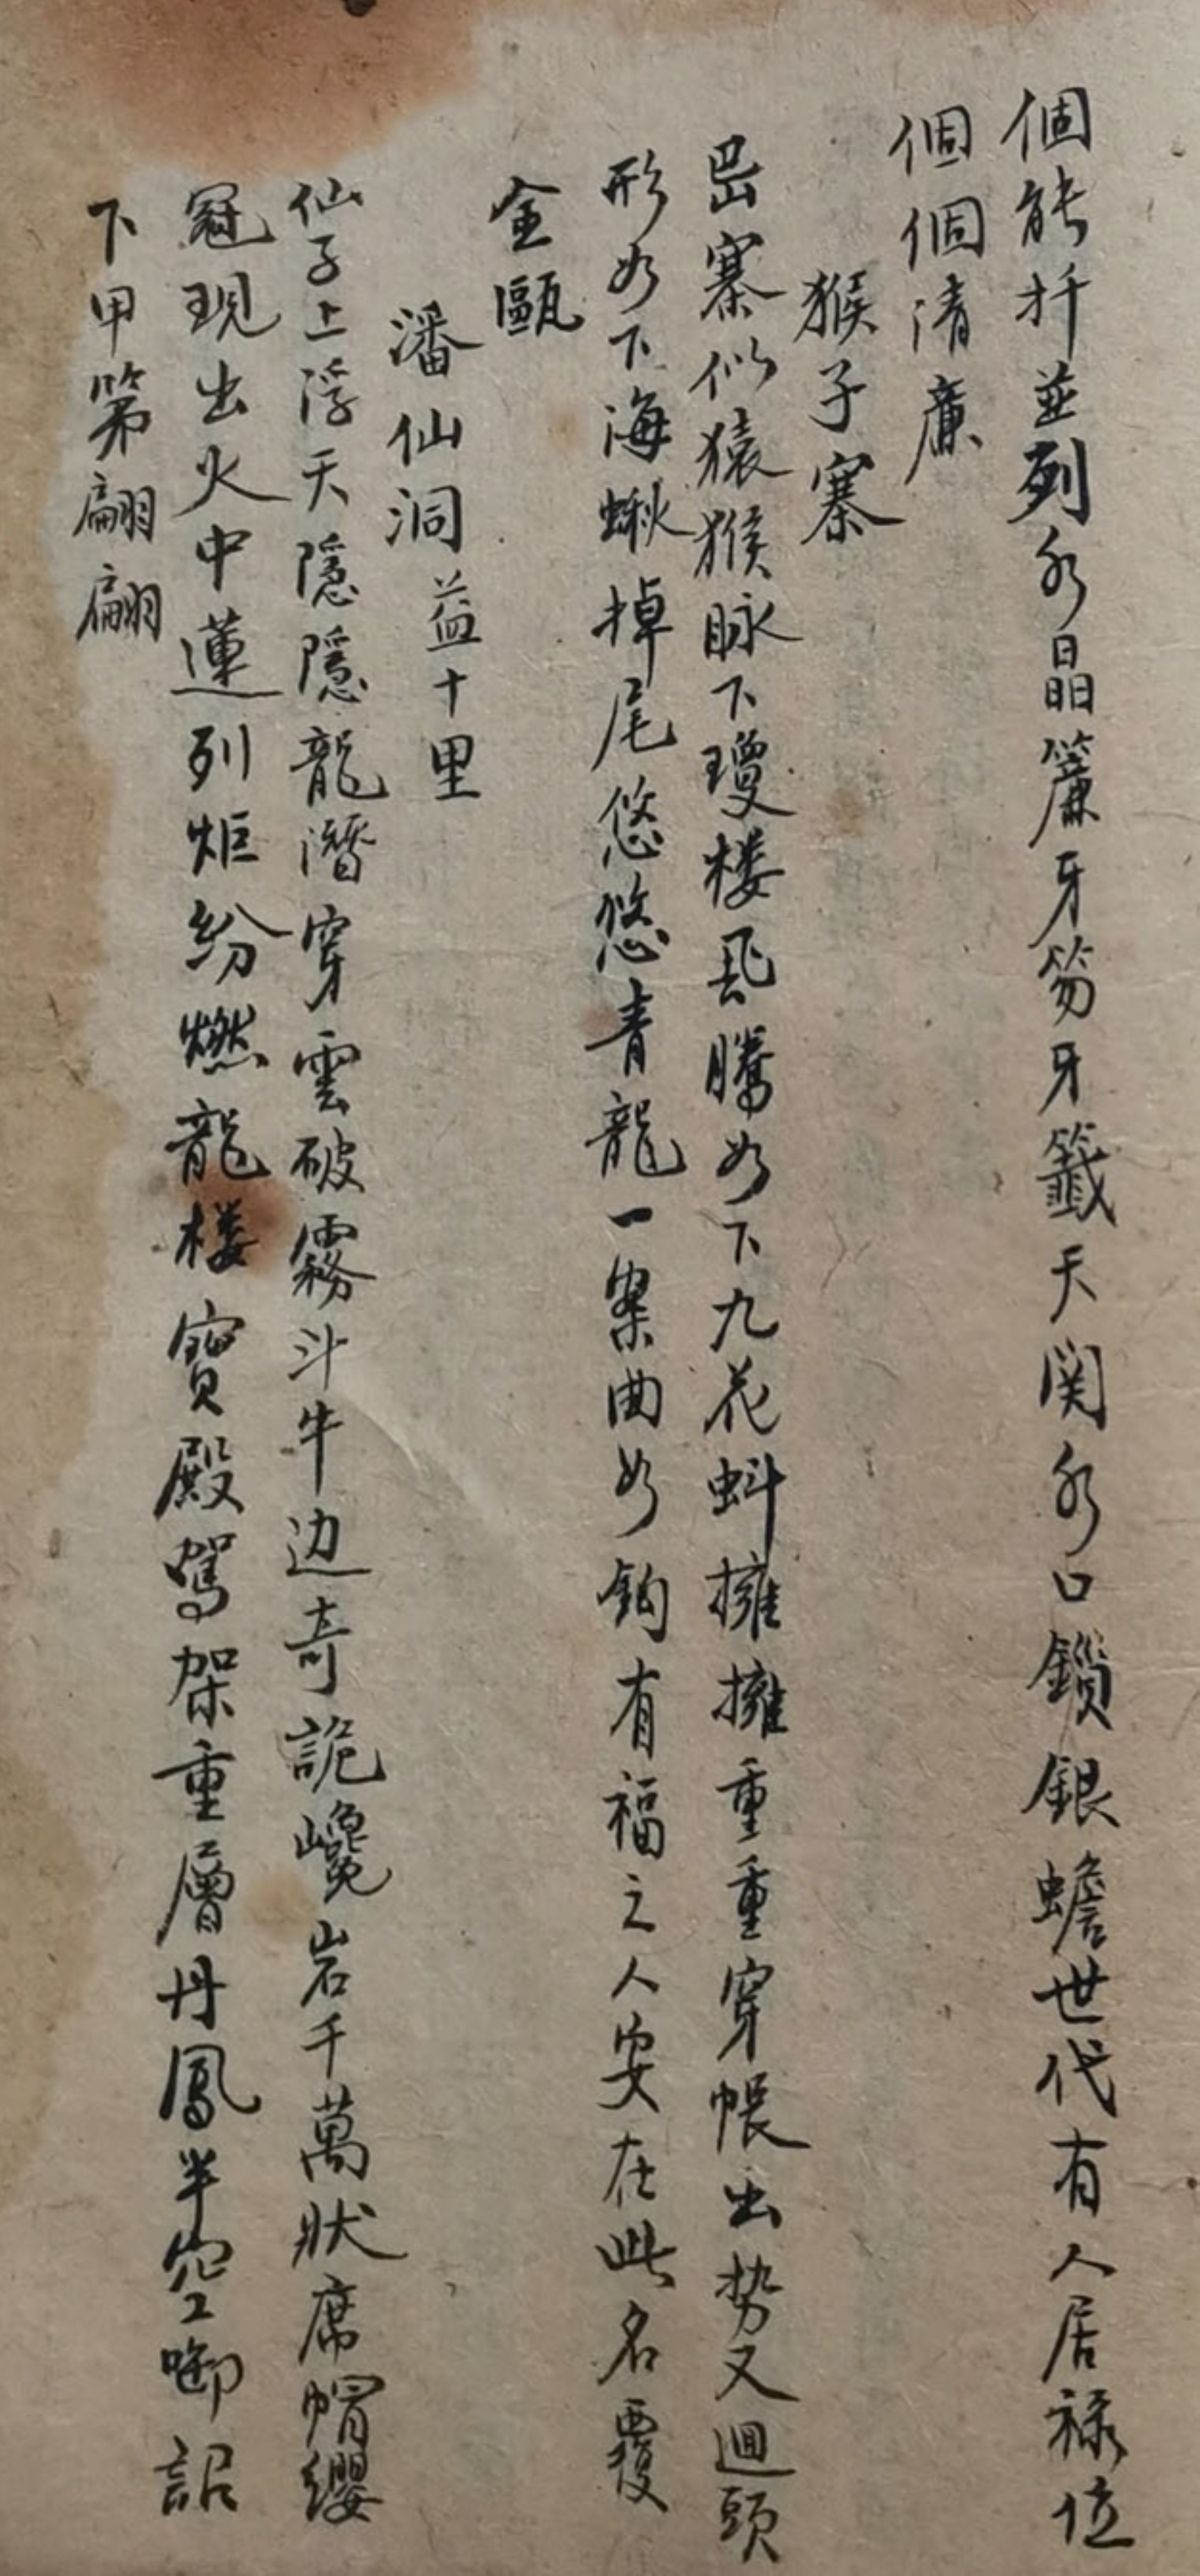 個能扦並列水晶簾牙笏牙籤天関水口鎖銀蟾世代有人居禄位
個個清廉
猴子寨
岊寨似猿猴脉下瓊楼飛騰如下九花虯擁擁重重穿帳出势又迴頭
形如下海蝌掉尾悠悠青龍一案曲如鈎有福之人安在此名覆
金甌
潘仙洞益十里
仙子上浮天隱隱龍潛穿雲破霧斗牛边奇詭巉岩千萬狀席帽纓
冠現出火中蓮列炬紛燃龍楼寶殿駕架重層丹鳳半空啣詔
下甲第翩翩